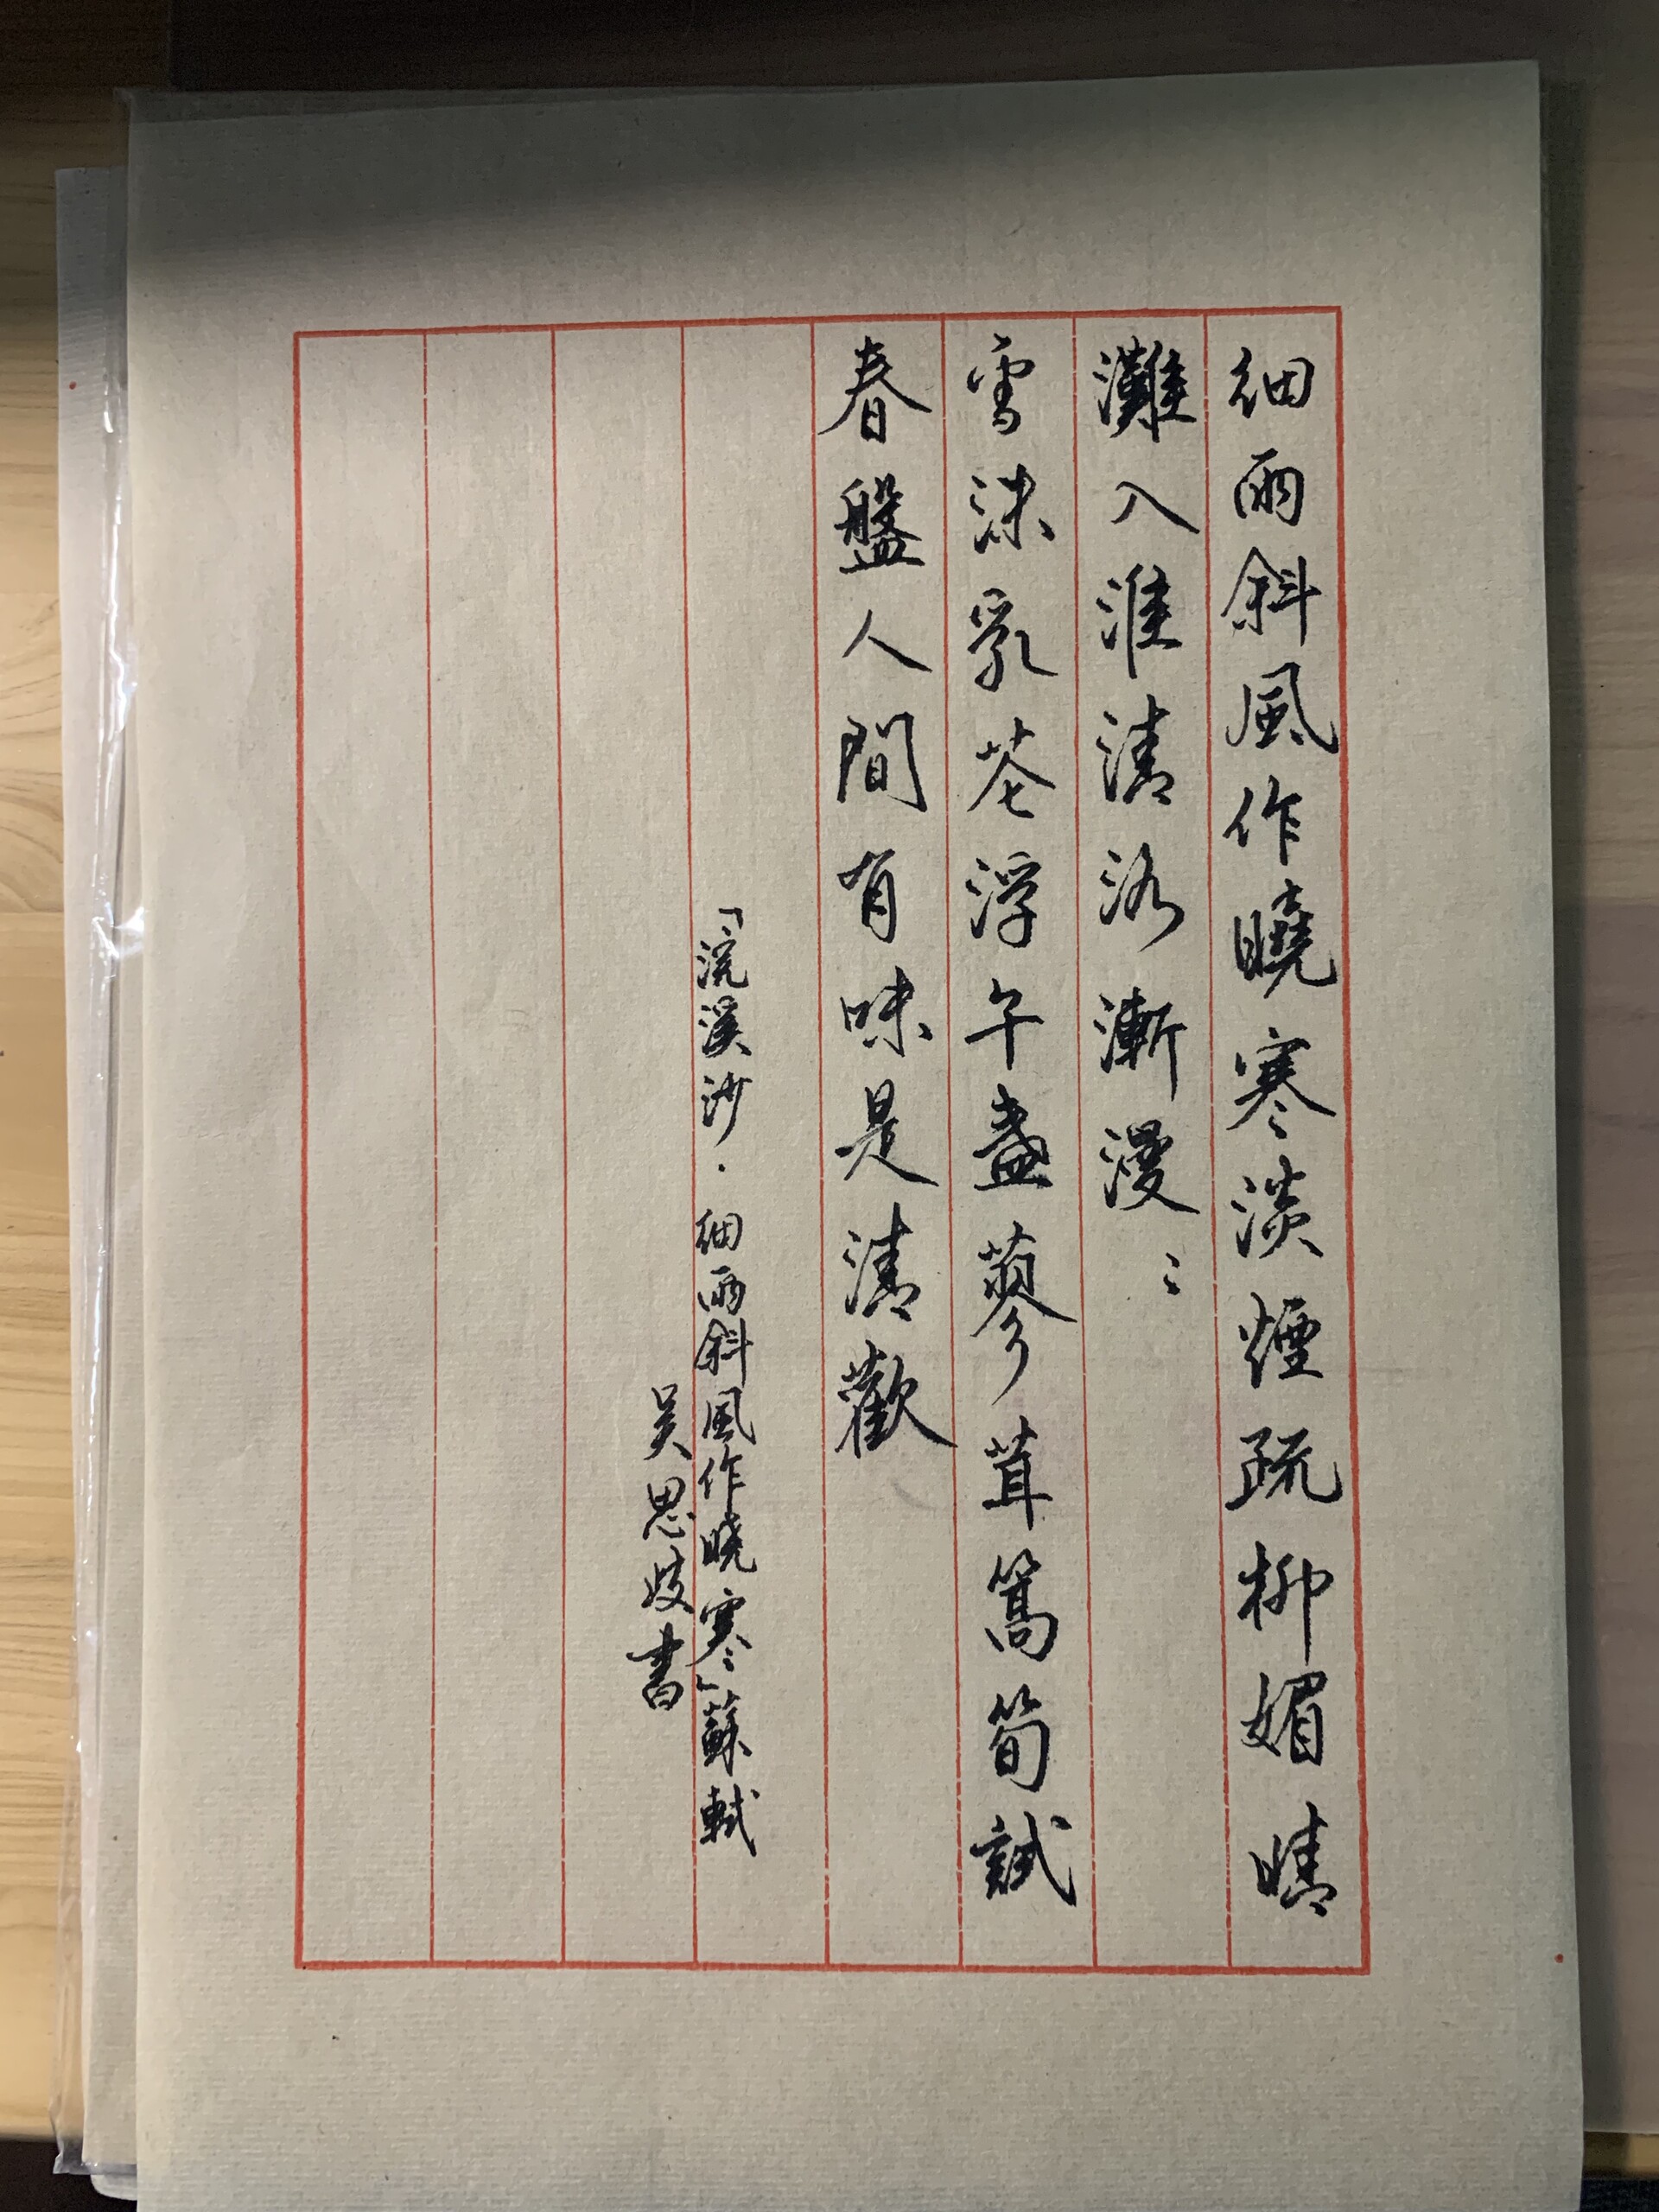 細雨斜風作曉寒淡煙疏柳媚晴
灘入淮清洛漸漫〻
雪沫乳花浮午盞蓼茸蒿筍試
春盤人間有味是清歡
「浣溪沙·細雨斜風作曉寒」蘇軾
吴思 書